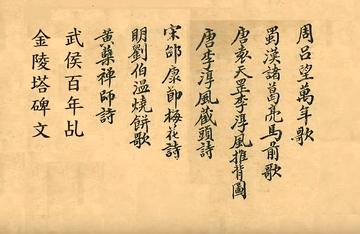 周呂望萬年歌
蜀漢諸葛亮馬前歌
唐袁天罡李淳風推背圖
唐李淳風藏頭詩
宋邵康節梅花詩
明劉伯溫燒餅歌
黃蘗禪師詩
武侯百年乩
金陵塔碑文